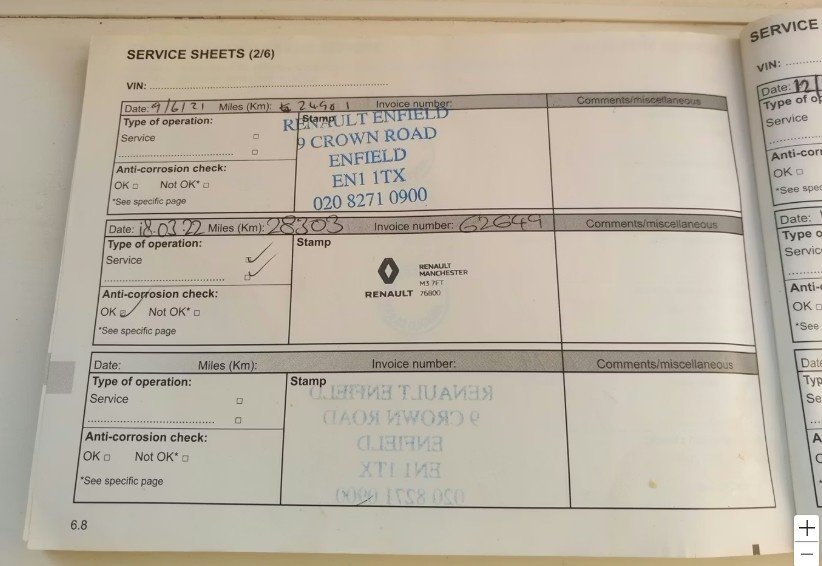 SERVICE SHEETS (2/6)
VIN:
Date: 9/6/21 Miles (Km): 24901 Invoice number: Comments/miscellaneous
Type of operation:
Stamp
Service
RENAULT ENFIELD
9 CROWN ROAD
ENFIELD
EN1 1TX
020 8271 0900
Anti-corrosion check:
OK Not OK*
*See specific page
Date: 18.03.22 Miles (Km): 28303 Invoice number: 62649 Comments/miscellaneous
Type of operation:
Stamp
Service
RENAULT
RENAULT
MANCHESTER
M3 7FT
76800
Anti-corrosion check:
OK Not OK*
*See specific page
Date: Miles (Km): Invoice number: Comments/miscellaneous
Type of operation:
Stamp
Service
RENAULT ENFIELD
9 CROWN ROAD
ENFIELD
EN1 1TX
020 8271 0900
Anti-corrosion check:
OK Not OK*
*See specific page
6.8
SERVICE
VIN:
Date: 12/
Type of op
Service
Anti-corr
OK
*See spec
Date:
Type o
Servic
Anti-
OK
*See
Date
Typ
Se
A